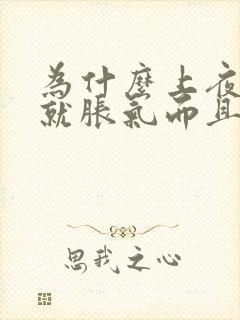 為什麼上夜
就脹氣而且
思我之心